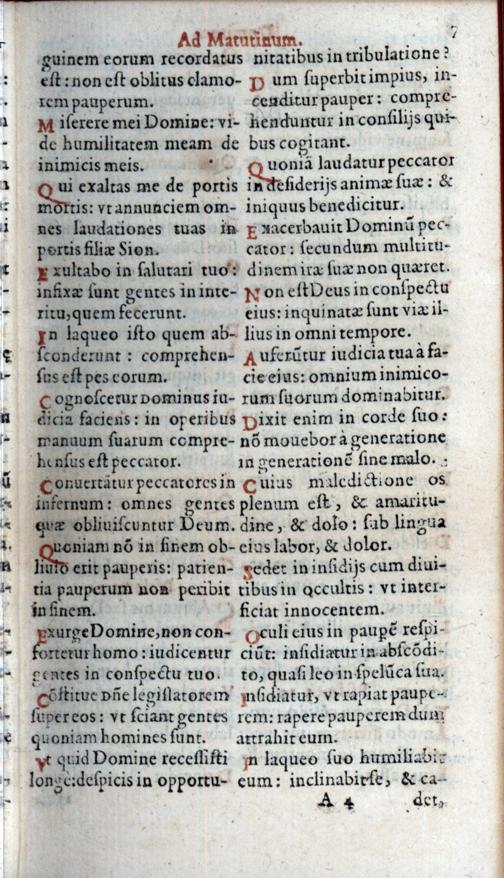 Ad Matutinum.
7
guinem eorum recordatus
est: non est oblitus clamo-
rem pauperum.
Miserere mei Domine: vi-
de humilitatem meam de
inimicis meis.
Qui exaltas me de portis
mortis: vt annunciem om-
nes laudationes tuas in
portis filiæ Sion.
Exultabo in salutari tuo:
infixæ sunt gentes in inte-
ritu, quem fecerunt.
In laqueo isto quem ab-
sconderunt: comprehen-
sus est pes eorum.
Cognoscetur Dominus iu-
dicia faciens: in operibus
manuum suarum compre-
hensus est peccator.
Conuertātur peccatores in
infernum: omnes gentes
quæ obliuiscuntur Deum.
Quoniam nō in finem ob-
liuio erit pauperis: patien-
tia pauperum non peribit
in finem.
Exurge Domine, non con-
fortetur homo: iudicentur
gentes in conspectu tuo.
Cōstitue Dñe legislatorem
super eos: vt sciant gentes
quoniam homines sunt.
Vt quid Domine recessisti
longe: despicis in opportu-
nitatibus in tribulatione?
Dum superbit impius, in-
cenditur pauper: compre-
henduntur in consilijs qui-
bus cogitant.
Quoniā laudatur peccator
in desiderijs animæ suæ: &
iniquus benedicitur.
Exacerbauit Dominū pec-
cator: secundum multitu-
dinem iræ suæ non quæret.
Non est Deus in conspectu
eius: inquinatæ sunt viæ il-
lius in omni tempore.
Auferūtur iudicia tua à fa-
cie eius: omnium inimico-
rum suorum dominabitur.
Dixit enim in corde suo:
nō mouebor à generatione
in generationē sine malo.
Cuius maledictione os
plenum est, & amaritu-
dine, & dolo: sub lingua
eius labor, & dolor.
Sedet in insidijs cum diui-
tibus in occultis: vt inter-
ficiat innocentem.
Oculi eius in paupē respi-
ciūt: insidiatur in abscōdi-
to, quasi leo in spelūca sua.
Insidiatur, vt rapiat paupe-
rem: rapere pauperem dum
attrahit eum.
In laqueo suo humiliabit
eum: inclinabit se, & ca-
A 4
det,